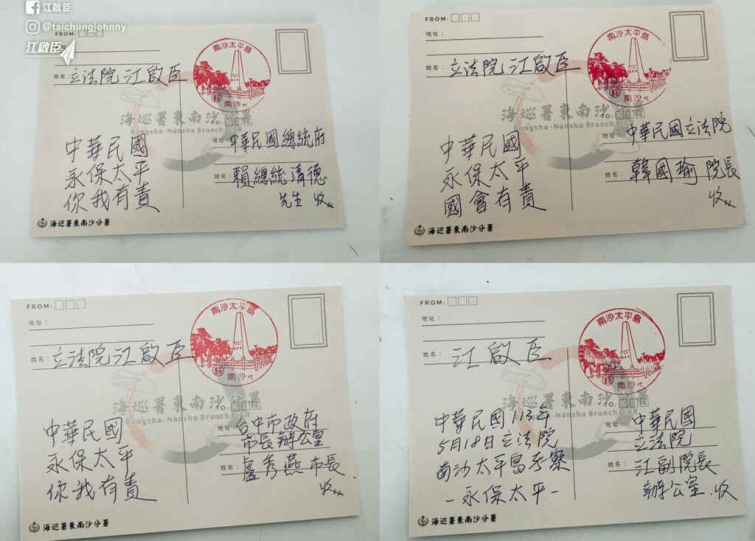 江啟臣
@taichungjohnny
江啟臣
FROM:
地址:
姓名: 立法院 江啟臣
南沙太平島
南沙
海巡署東南沙分署
Dongsha-Nansha Branch
中華民國
永保太平
你我有責
地址: 中華民國總統府
姓名: 賴總統清德
先生 收
海巡署東南沙分署
FROM:
地址:
姓名: 立法院 江啟臣
南沙太平島
南沙
海巡署東南沙分署
Dongsha-Nansha Branch
中華民國
永保太平
國會有責
地址: 中華民國立法院
姓名: 韓國瑜 院長
收
海巡署東南沙分署
FROM:
地址:
姓名: 立法院 江啟臣
南沙太平島
南沙
海巡署東南沙分署
Dongsha-Nansha Branch
中華民國
永保太平
你我有責
台中市政府
地址: 市長辦公室
姓名: 盧秀燕 市長
收
海巡署東南沙分署
FROM:
地址:
姓名: 江啟臣
南沙太平島
南沙
海巡署東南沙分署
Dongsha-Nansha Branch
中華民國113年
5月18日立法院
南沙太平島考察
-永保太平-
地址: 中華民國
立法院
姓名: 江副院長
辦公室 收
海巡署東南沙分署